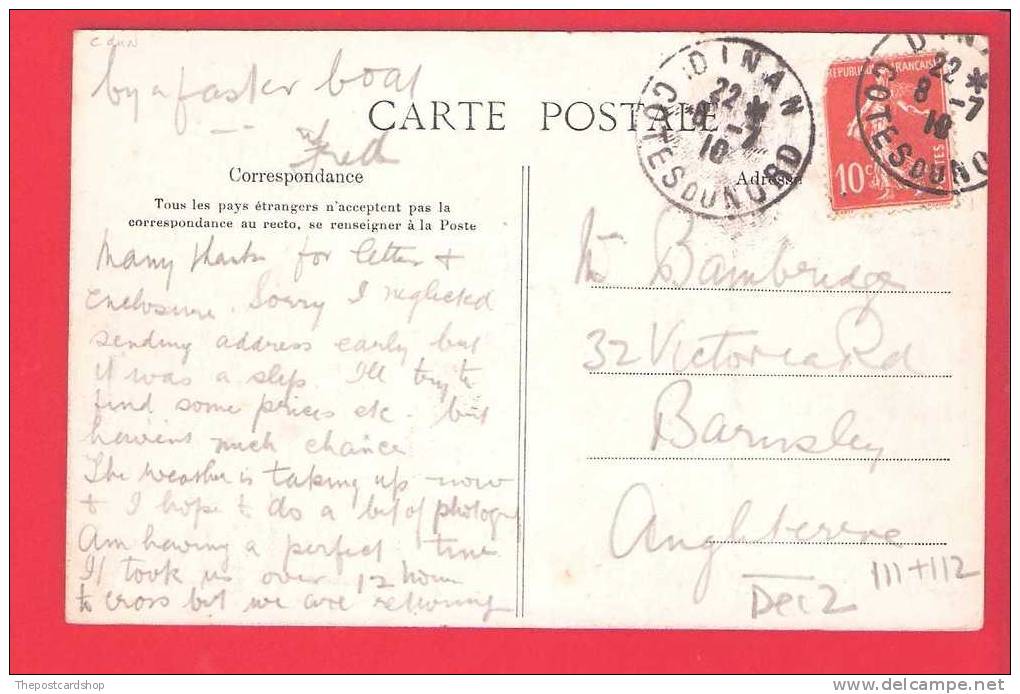 C dun
by a faster boat
Fred
CARTE POSTALE
Correspondance
Adresse
Tous les pays étrangers n'acceptent pas la
correspondance au recto, se renseigner à la Poste
Many thanks for letter &
enclosure. Sorry I neglected
sending address early but
it was a slip. I'll try to
find some prices etc. but
havent much chance
The weather is taking up now
& I hope to do a bit of photogr
Am having a perfect time
It took us over 12 hours
to cross but we are returning
DINAN
22 *
*8 -7
10
COTES DU NORD
DINA
22 *
8 -7
10
COTES DU NO
REPUBLIQUE FRANÇAISE
10c
POSTES
Mr Bambridge
32 Victoria Rd
Barnsley
Angleterre
111+112
Dec 2
Thepostcardshop
www.delcampe.net